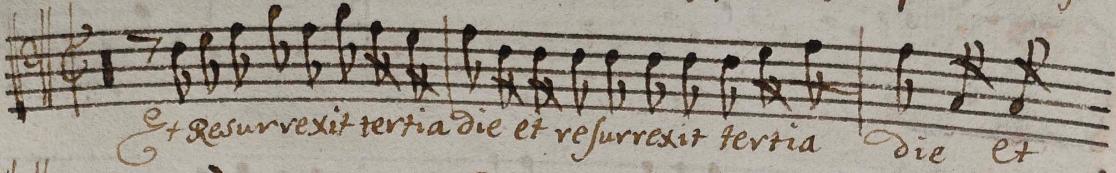 Et Resurrexit tertia die et resurrexit tertia die et